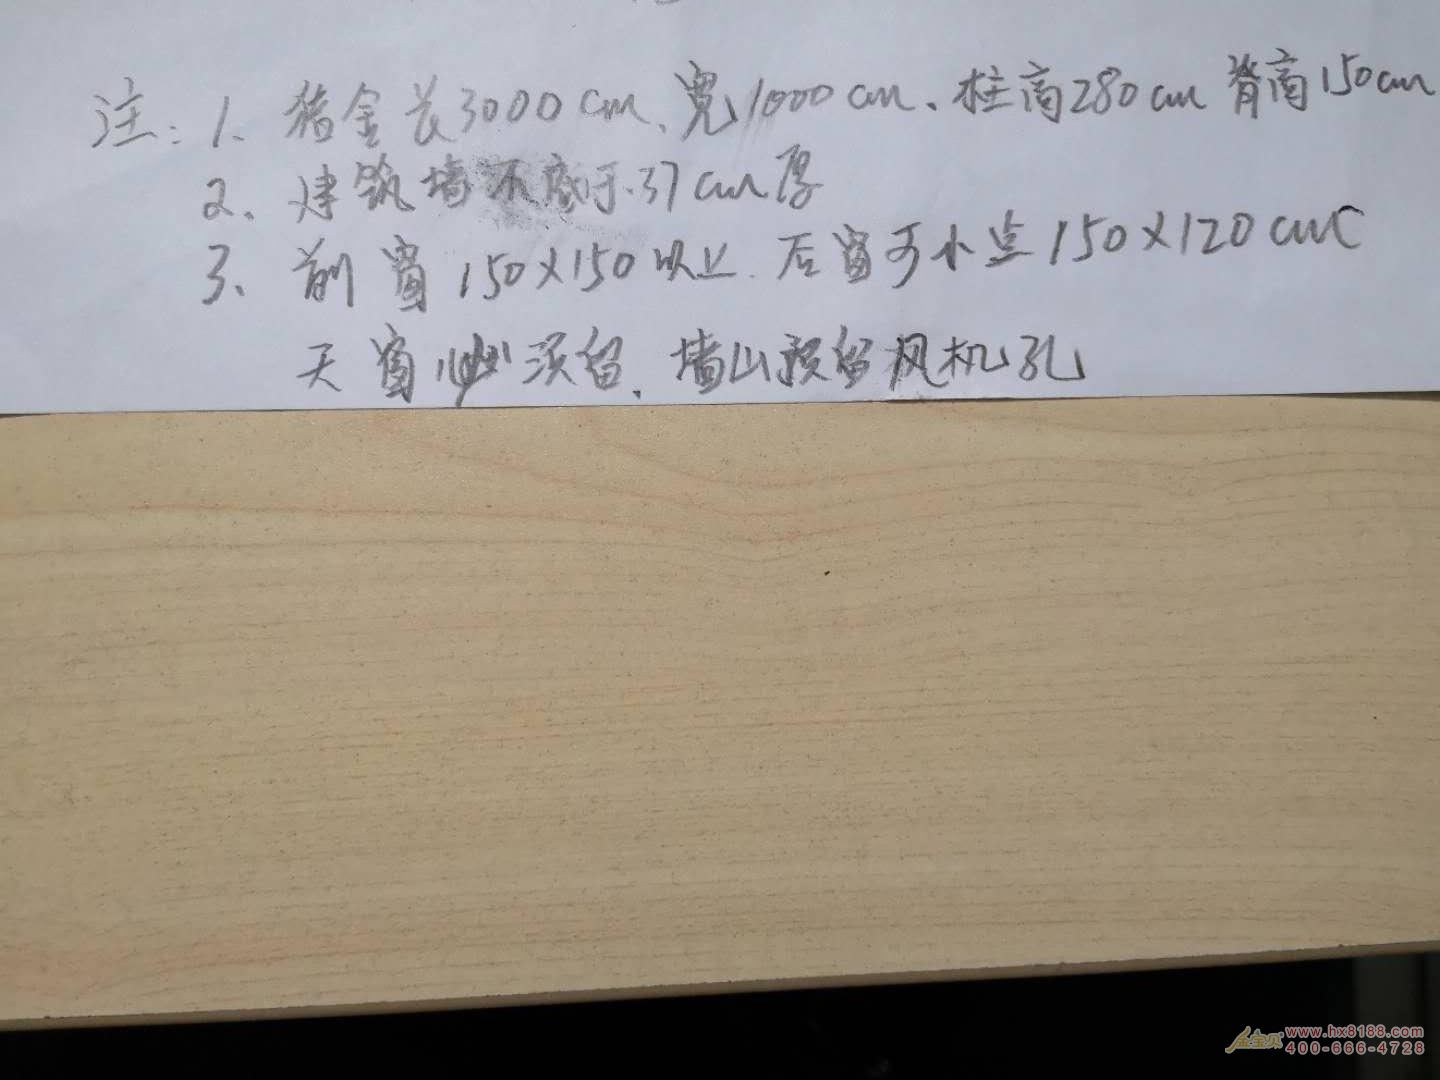 注：1、猪舍长3000cm、宽1000cm、柱高280cm 脊高150cm
2、建筑墙不底于37cm厚
3、前窗150×150以上.后窗可小点150×120cm
天窗必须留.墙山预留风机孔
金宝贝 www.hx8188.com
400-666-4728